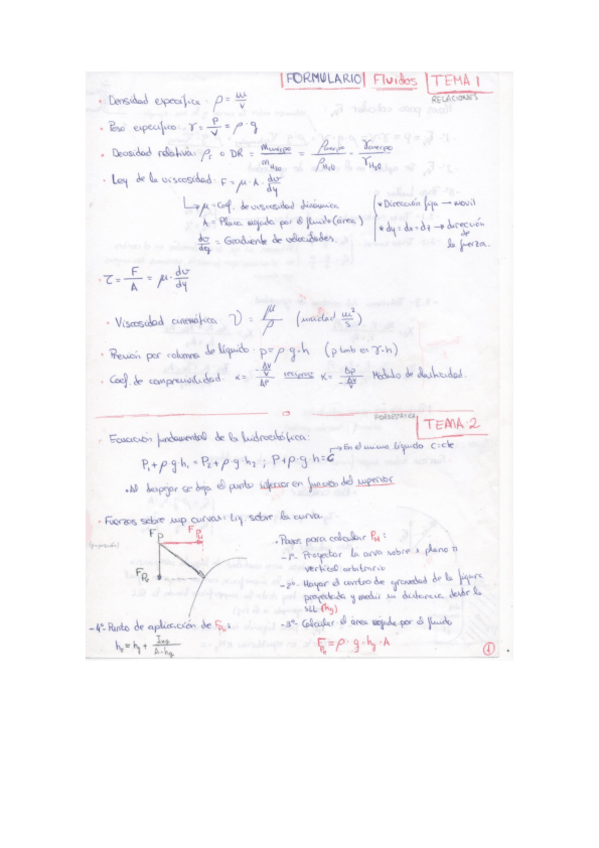 FORMULARIO Fluidos TEMA 1
RELACIONES
· Densidad específica: ρ = m/v
· Peso específico: γ = P/V = ρ·g
· Densidad relativa: ρr o DR = m cuerpo / m H2O = ρ cuerpo / ρ H2O = γ cuerpo / γ H2O
· Ley de la viscosidad: F = μ·A· dv/dy
μ = Coef. de viscosidad dinámica
A = Placa mojada por el fluido (área)
dv/dy = Gradiente de velocidades.
* Dirección fija → movil
* dy = dx = dz → dirección de la fuerza.
· τ = F/A = μ· dv/dy
· Viscosidad cinemática ν = μ/ρ (unidad m²/s)
· Presión por columna de líquido: p = ρ·g·h (p tmb es γ·h)
· Coef. de compresibilidad: α = -ΔV/V / ΔP inverso K = Δp / -ΔV/V Módulo de elasticidad.
HIDROSTÁTICA TEMA-2
· Ecuación fundamental de la hidrostática:
→ En el mismo líquido c=cte
P1 + ρ g h1 = P2 + ρ g h2 ; P + ρ·g·h = C
• Al despejar se deja el punto inferior en función del superior
· Fuerzas sobre sup curvas: Liq. sobre la curva
FP FPH
FPV
• Pasos para calcular FPH:
-1º- Proyectar la curva sobre 1 plano
vertical arbitrario
-2º- Hayar el centro de gravedad de la figura
proyectada y medir su distancia desde la
SLL (hg)
-3º- Calcular el área mojada por el fluido
FPH = ρ·g·hg·A
-4º- Punto de aplicación de FPH:
1